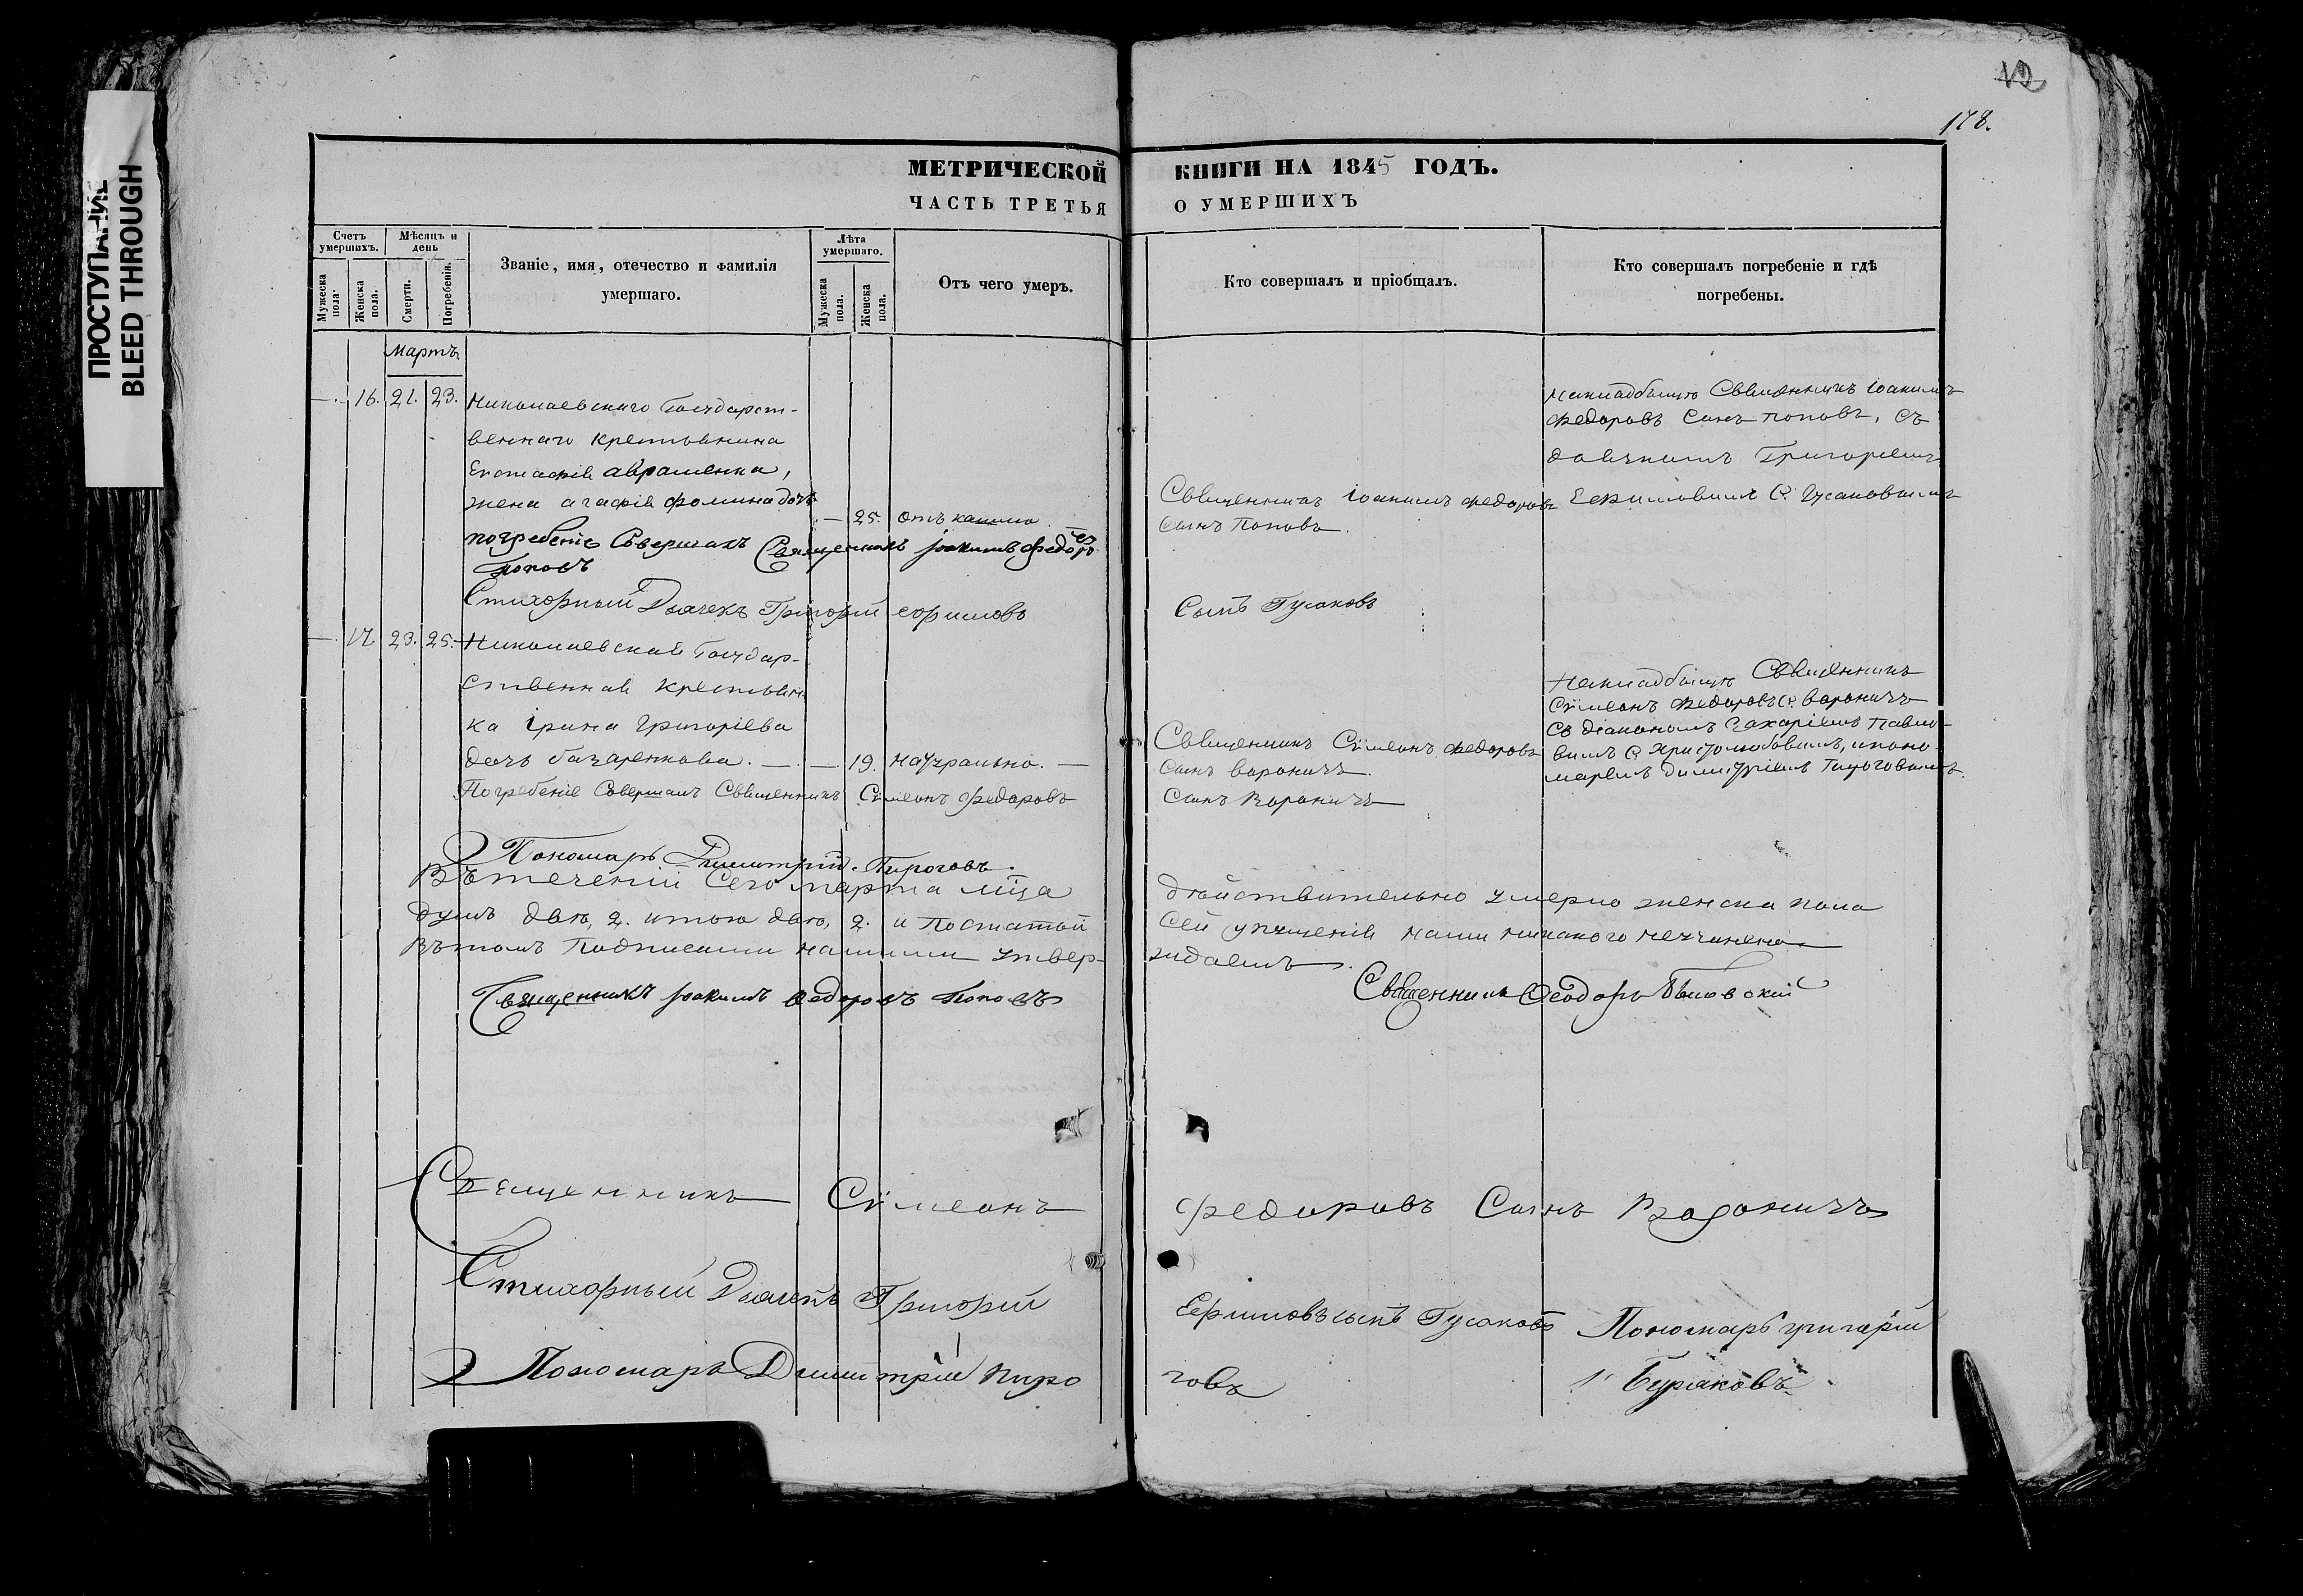 ПРОСТУПАНИЕ
BLEED THROUGH
12
178.
МЕТРИЧЕСКОЙ КНИГИ НА 1845 ГОДЪ.
ЧАСТЬ ТРЕТЬЯ О УМЕРШИХЪ
Счетъ умершихъ.
Мужеска пола.
Женска пола.
Мѣсяцъ и день
Смерти.
Погребенія.
Званіе, имя, отечество и фамилія
умершаго.
Лѣта умершаго.
Мужеска пола.
Женска пола.
Отъ чего умеръ.
Кто совершалъ и пріобщалъ.
Кто совершалъ погребеніе и гдѣ
погребены.
Мартъ
— 16. 21. 23. Николаевскаго Государст-
веннаго крестьянина
Евстафія Авраменка,
жена Агафія Фомина дочь
— 25. отъ кашлю —
Священникъ Іоакимъ Федоровъ
сынъ Поповъ.
На кладбищѣ Священникъ Іоакимъ
Федоровъ сынъ Поповъ, съ
дьячкомъ Григоріемъ
Ефимовымъ С. Гусаковымъ
погребеніе Совершалъ Священникъ Іоакимъ Федоровъ
Поповъ
Стихорный Дьячекъ Григорій Ефимовъ
Сынъ Гусаковъ
— 17. 23. 25. Николаевская Государ-
ственная крестьян-
ка Ірина Григоріева
дочь Базаренкова. — — 19. натурально. —
Священникъ Сѵмеонъ Федоровъ
сынъ Вороничъ.
На кладбищѣ Священникъ
Сѵмеонъ Федоровъ С. Вороничъ
съ діакономъ Захаріемъ Павло-
вымъ С. Христолюбовымъ, и поно-
маремъ Димитріемъ Пироговымъ.
Погребеніе Совершалъ Священникъ Сѵмеонъ Федоровъ
Сынъ Вороничъ
Пономарь Димитрій Пироговъ.
Въ теченіи Сего марта мца дѣйствительно умерло женска пола
душъ двѣ, 2. итого двѣ, 2. и по статьи сей упущенія нами никакого неучинено
Въ томъ подписами нашими утвер-
ждаемъ.
Священникъ Іоакимъ Федоровъ Поповъ
Священникъ Феодоръ
Священникъ Сѵмеонъ Федоровъ Сынъ Вороничъ
Стихорный Дьячекъ Григорій Ефимовъ сынъ Гусаковъ
Пономарь Григорій
Бураковъ
Пономарь Димитрій Пиро
говъ